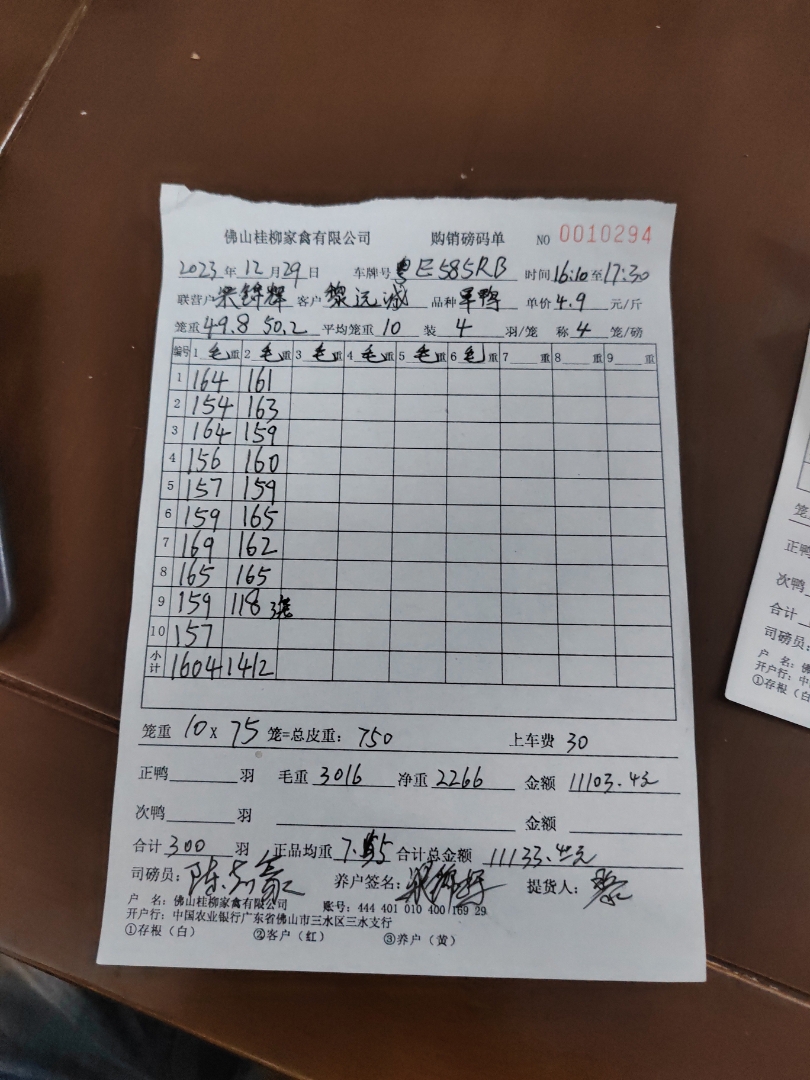 佛山桂柳家禽有限公司 购销磅码单 NO 0010294
2023年12月29日 车牌号 粤E585RB 时间16:10至17:30
联营户 梁锦辉 客户 黎远诚 品种 单价4.9 元/斤
笼重49.8 50.2 平均笼重10 装 4 羽/笼 称 4 笼/磅
编号 1 毛重 2 毛重 3 毛重 4 毛重 5 毛重 6 毛重 7 重 8 重 9 重
1 164 161
2 154 163
3 164 159
4 156 160
5 157 159
6 159 165
7 169 162
8 165 165
9 159 118 3笼
10 157
小计 1604 1412
笼重 10 x 75 笼=总皮重: 750 上车费 30
正鸭 羽 毛重 3016 净重 2266 金额 11103.4元
次鸭 羽 金额
合计 300 羽 正品均重 7.55 合计总金额 11133.4元
司磅员: 养户签名: 梁锦辉 提货人: 黎
户 名: 佛山桂柳家禽有限公司 账号: 444 401 010 400 169 29
开户行: 中国农业银行广东省佛山市三水区三水支行
①存根（白） ②客户（红） ③养户（黄）
正鸭
次鸭
合计
司磅员:
户 名: 佛
开户行: 中
①存根（白